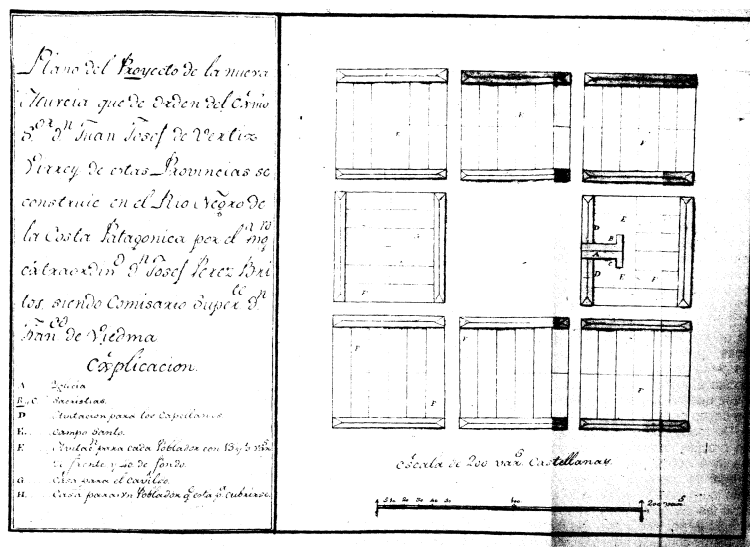 Plano del Proyecto de la nueva
Murcia que de orden del Exmo
S.or d.n Juan Josef de Vertiz
Virrey de estas Provincias se
construie en el Rio Negro de
la Costa Patagonica por el Yng.ro
extraordin.o d.n Josef Perez Bri
tos, siendo Comisario Super.te d.n
Fran.co de Viedma
Explicacion.
A Yglecia
B, C. Sacristias.
D Avitacion para los Capellanes
E. Campo Santo.
F para cada Poblador con 13 y ½ var.s
de frente y 40 de fondo.
G Casa para el Cavildo.
H. Casa para un Poblador q.e esta p.r cubrirse.
F
F
F
F
D
B
E
A
C
D
E
F
F
F
F
F
F
Escala de 200 var.s Castellanas
5 10 20 30 40 50 100 200 var.s